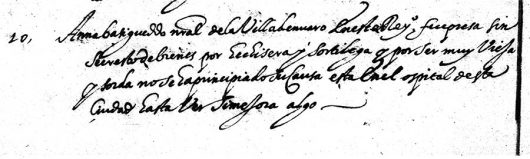 20, Anna batigueddo nral de la Villa de nuero En este Reyº. fue presa sin
secresto de bienes por Echisera y sortilega y por ser muy Vieja
y sorda no se a principiado su Causa esta En el ospital de esta
Ciudad hasta Ver si mejora algo